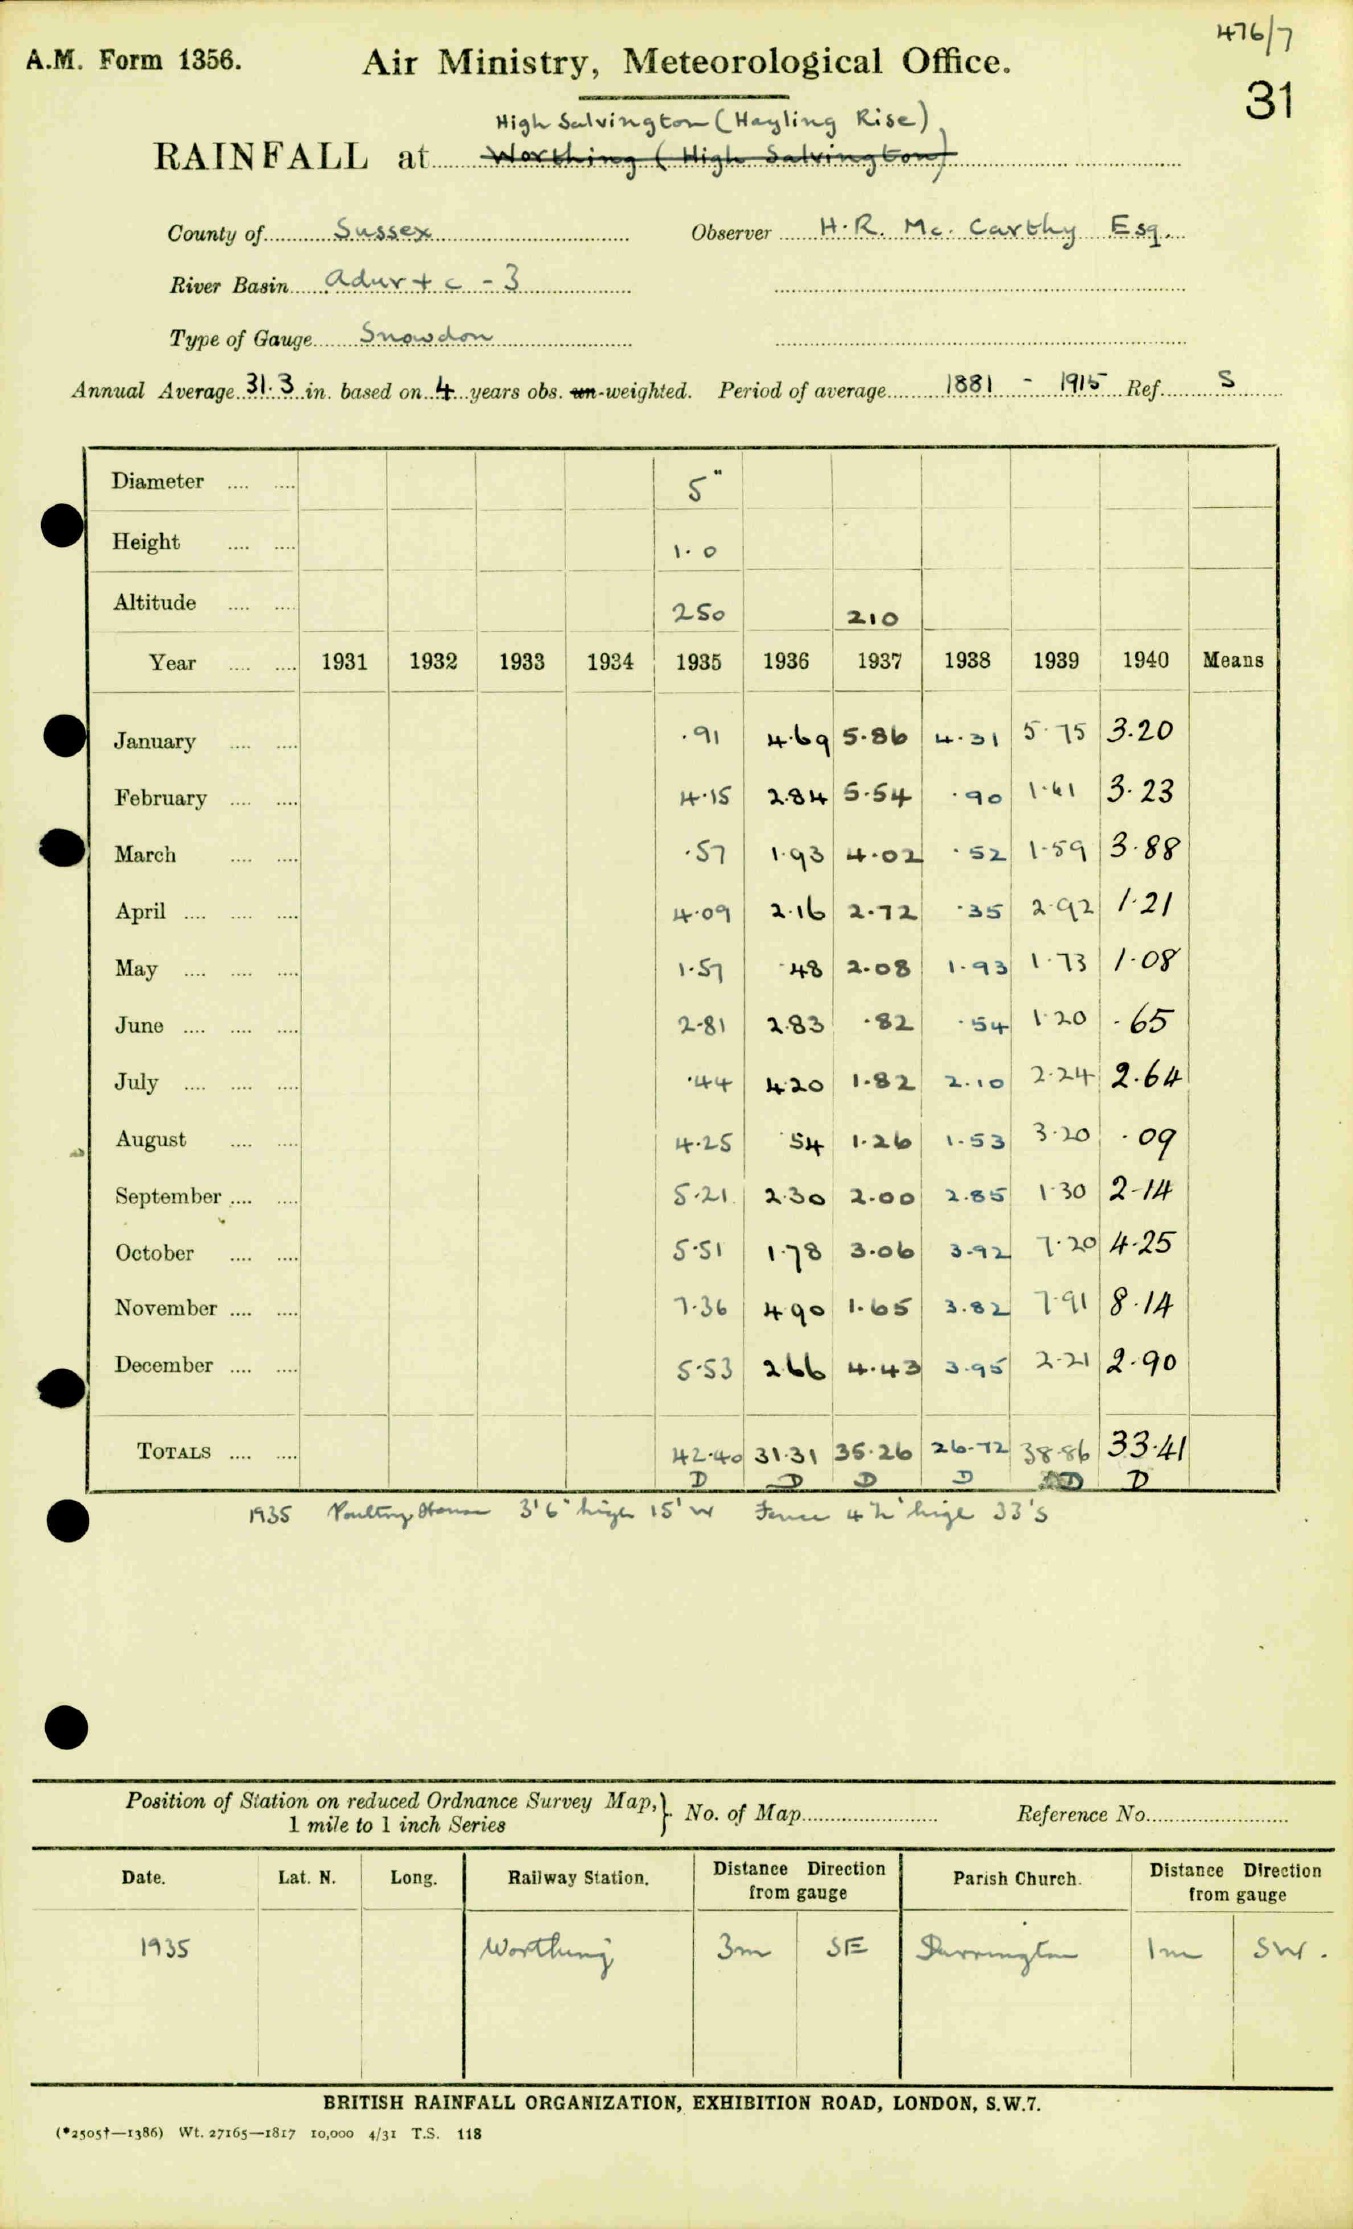 476/7
31
A.M. Form 1356.
Air Ministry, Meteorological Office.
High Salvington (Hayling Rise)
RAINFALL at Worthing (High Salvington)
County of Sussex Observer H.R. Mc. Carthy Esq.
River Basin Adur + c - 3
Type of Gauge Snowdon
Annual Average 31.3 in. based on 4 years obs. un-weighted. Period of average 1881 - 1915 Ref. S
Diameter .... .... 5"
Height .... .... 1.0
Altitude .... .... 250 210
Year .... .... 1931 1932 1933 1934 1935 1936 1937 1938 1939 1940 Means
January .... .... .91 4.69 5.86 4.31 5.75 3.20
February .... .... 4.15 2.84 5.54 .90 1.61 3.23
March .... .... .57 1.93 4.02 .52 1.59 3.88
April .... .... .... 4.09 2.16 2.72 .35 2.92 1.21
May .... .... .... 1.57 .48 2.08 1.93 1.73 1.08
June .... .... .... 2.81 2.83 .82 .54 1.20 .65
July .... .... .... .44 4.20 1.82 2.10 2.24 2.64
August .... .... 4.25 .54 1.26 1.53 3.20 .09
September .... .... 5.21 2.30 2.00 2.85 1.30 2.14
October .... .... 5.51 1.78 3.06 3.92 7.20 4.25
November .... .... 7.36 4.90 1.65 3.82 7.91 8.14
December .... .... 5.53 2.66 4.43 3.95 2.21 2.90
TOTALS .... .... 42.40 31.31 35.26 26.72 38.86 33.41
D D D D D D
1935 Poultry House 3'6" high 15' W Fence 4½' high 33' S
Position of Station on reduced Ordnance Survey Map, 1 mile to 1 inch Series } No. of Map Reference No.
Date. Lat. N. Long. Railway Station. Distance Direction from gauge Parish Church. Distance Direction from gauge
1935 Worthing 3m SE Durrington 1m SW.
BRITISH RAINFALL ORGANIZATION, EXHIBITION ROAD, LONDON, S.W.7.
(*2505†—1386) Wt. 27165—1817 10,000 4/31 T.S. 118